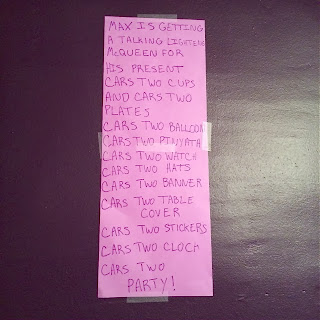 MAX IS GETTING
A TALKING LIGHTENS
McQUEEN FOR
HIS PRESENT
CARS TWO CUPS
AND CARS TWO
PLATES
CARS TWO BALLOON
CARS TWO PINYATH
CARS TWO WATCH
CARS TWO HATS
CARS TWO BANNER
CARS TWO TABLE
COVER
CARS TWO STICKERS
CARS TWO CLOCK
CARS TWO
PARTY!